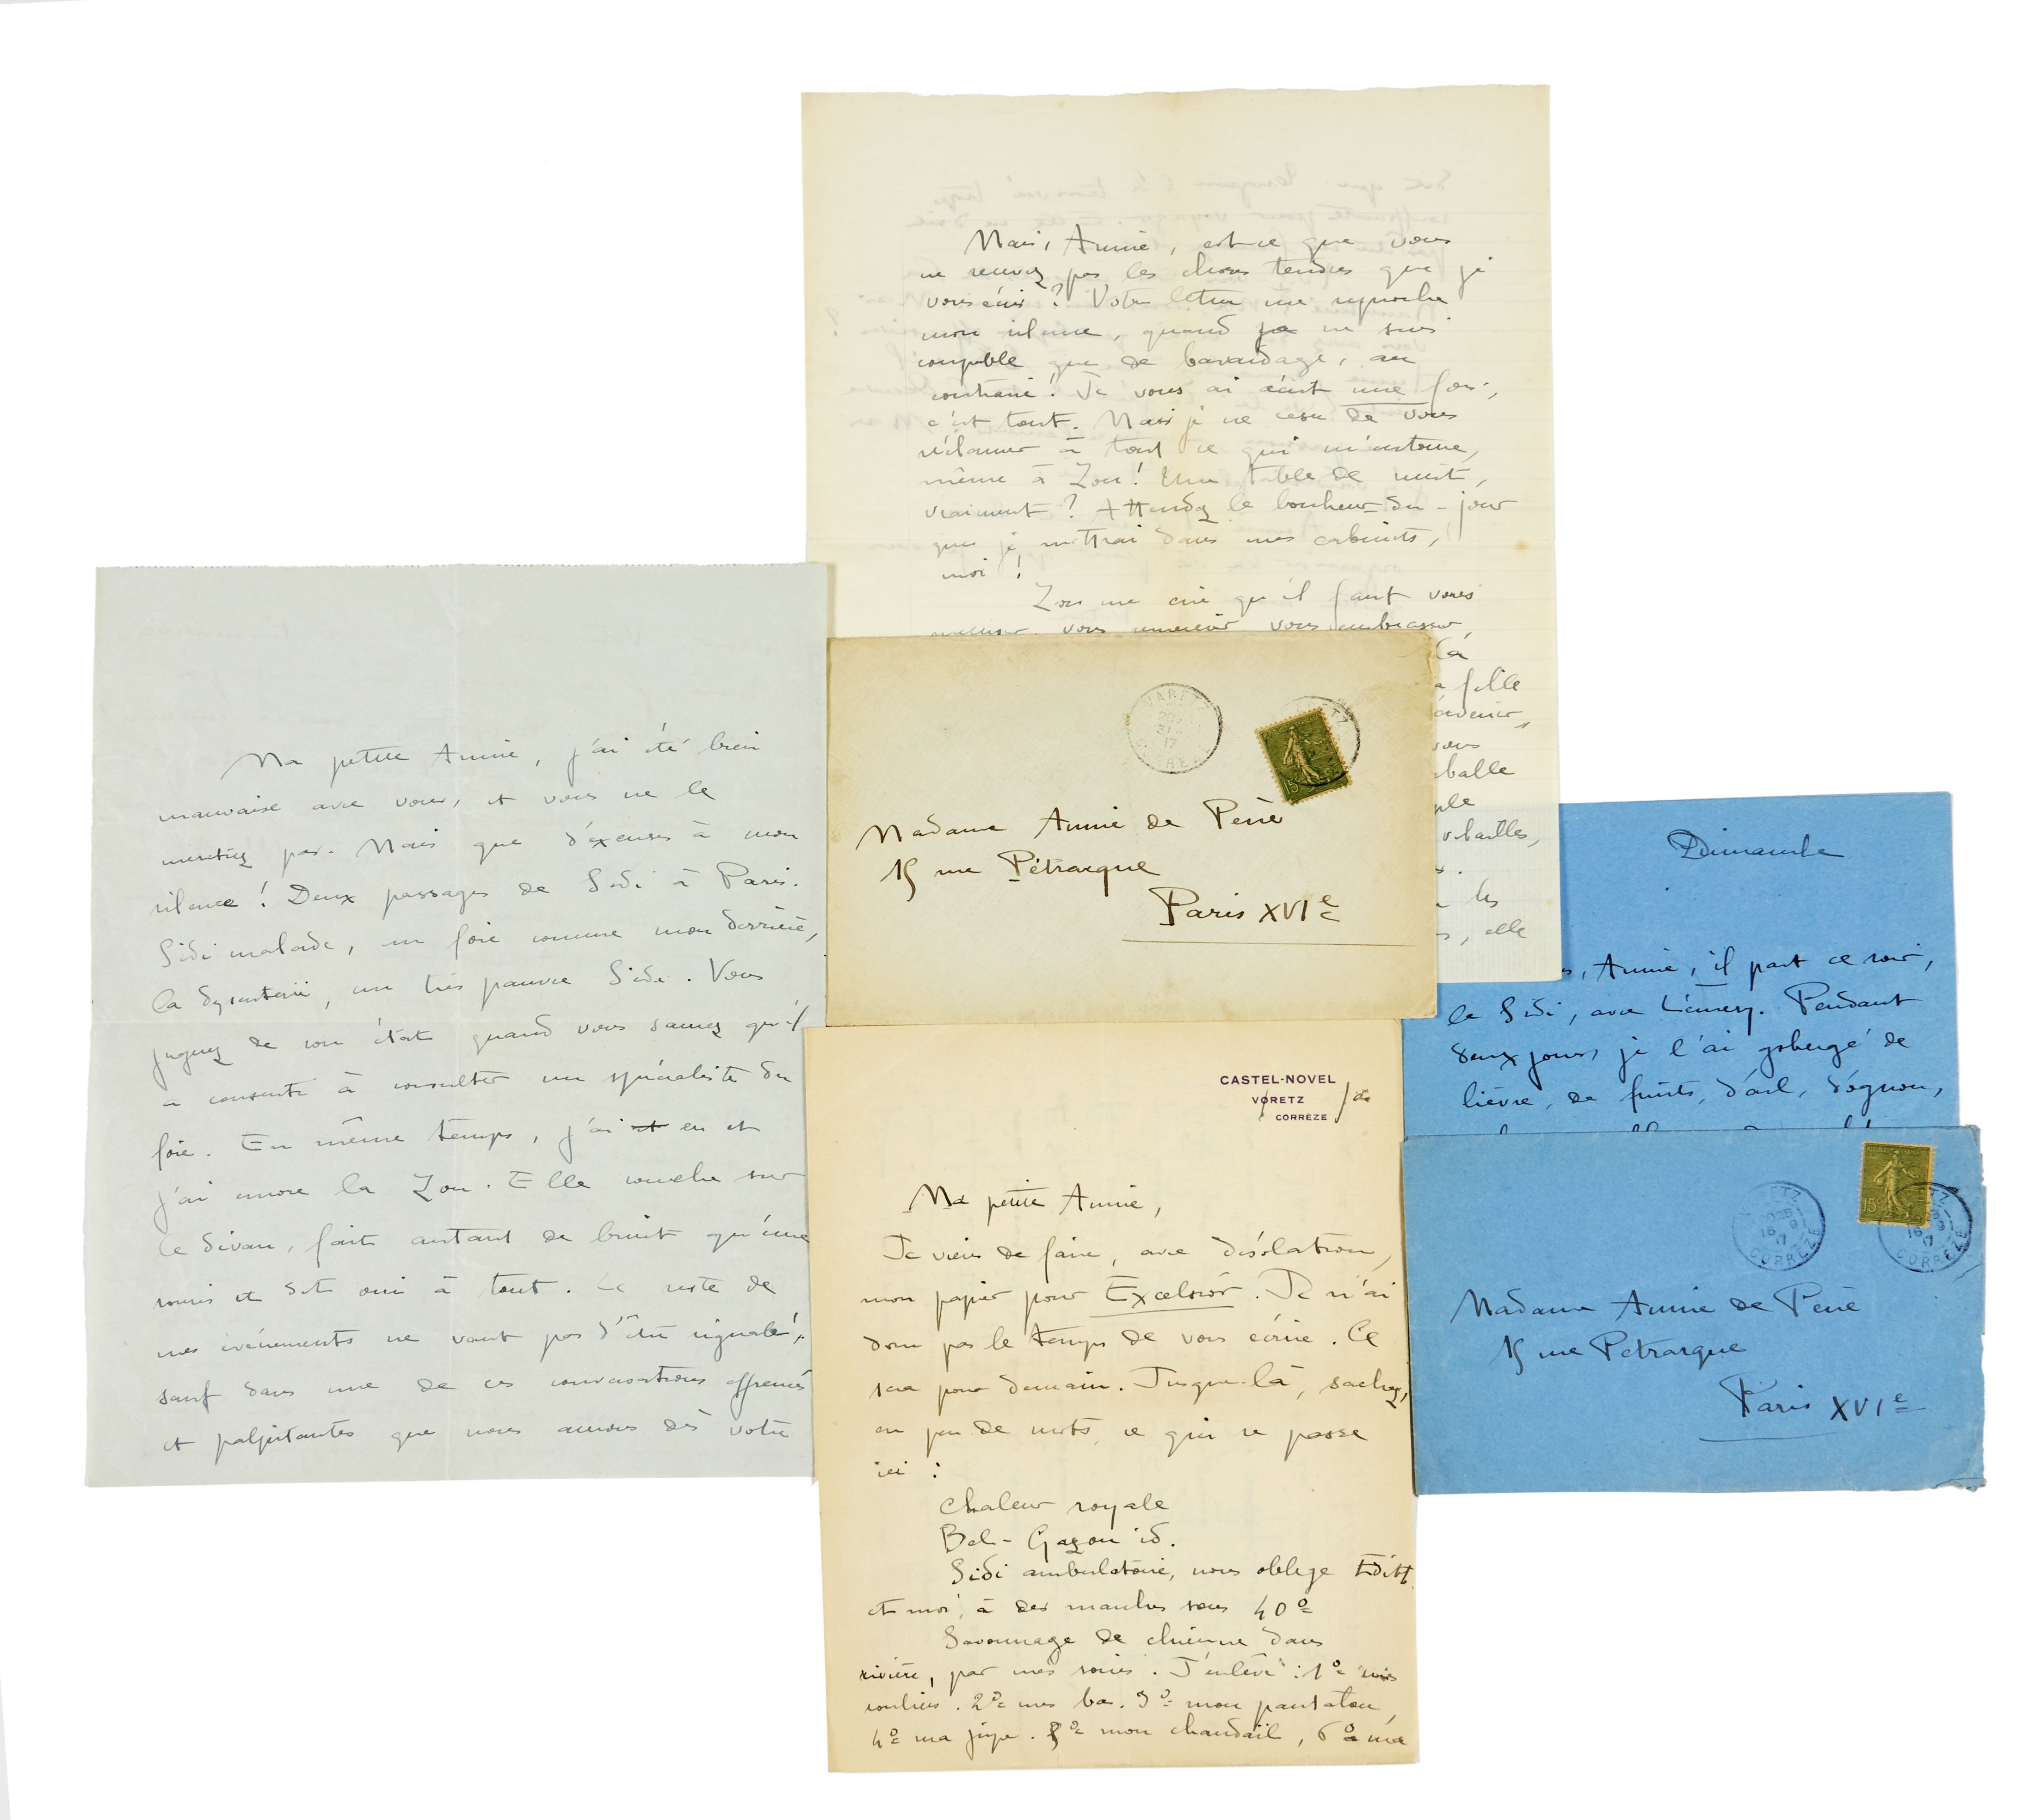 Mais, Annie, est-ce que vous
ne recevez pas les choses tendres que je
vous écris ? Votre lettre me reproche
mon silence, quand je ne suis
coupable que de bavardage, au
contraire ! Je vous ai écrit une fois,
c'est tout. Mais je ne cesse de vous
réclamer à tout ce qui m'entoure,
même à Zou ! Une table de nuit,
vraiment ? Attendez le bonheur-du-jour
que je mettrai dans mes cabinets,
moi !
Zou me crie qu'il faut vous
vous remercier vous embrasser
là
fille
vous
volailles,
les
, elle
Ma petite Annie, j'ai été bien
mauvaise avec vous, et vous ne le
méritiez pas. Mais que d'excuses à mon
silence ! Deux passages de Sidi à Paris.
Sidi malade, un foie comme mon derrière,
la dysenterie, un très pauvre Sidi. Vous
jugerez de son état quand vous saurez qu'il
a consenti à consulter un spécialiste du
foie. En même temps, j'ai et eu et
j'ai encore la Zou. Elle couche sur
le divan, fait autant de bruit qu'une
souris et dit oui à tout. Le reste de
mes événements ne vaut pas d'être signalé,
sauf dans une de ces conversations effrénées
et palpitantes que nous aurons dès votre
VARETZ
17
CORREZE
15
Madame Annie de Pène
15 rue Pétrarque
Paris XVIe
CASTEL-NOVEL
VORETZ
CORRÈZE
Ma petite Annie,
Je viens de faire, avec désolation,
mon papier pour Excelsior. Je n'ai
donc pas le temps de vous écrire. Ce
sera pour demain. Jusque-là, sachez,
en peu de mots, ce qui se passe
ici :
Chaleur royale
Bel-Gazou id.
Sidi ambulatoire, nous oblige Edith
et moi, à des marches sous 40°
Savonnage de chienne dans
rivière, par mes soins. J'enlève : 1° mes
souliers. 2° mes bas. 3° mon pantalon,
4° ma jupe. 5° mon chandail, 6° ma
Dimanche
, Annie, il part ce soir,
le Sidi, avec Lémery. Pendant
deux jours je l'ai gobergé de
lièvre, de fruits, d'ail, d'ognon,
16 9
17
CORREZE
15c
ETZ
16 9
17
CORREZE
Madame Annie de Pène
15 rue Pétrarque
Paris XVIe